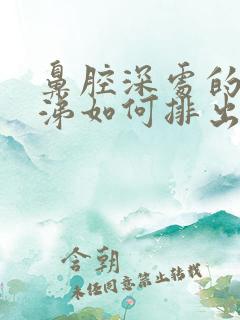 鼻腔深处的
涕如何排出
含朝
未经同意禁止转载